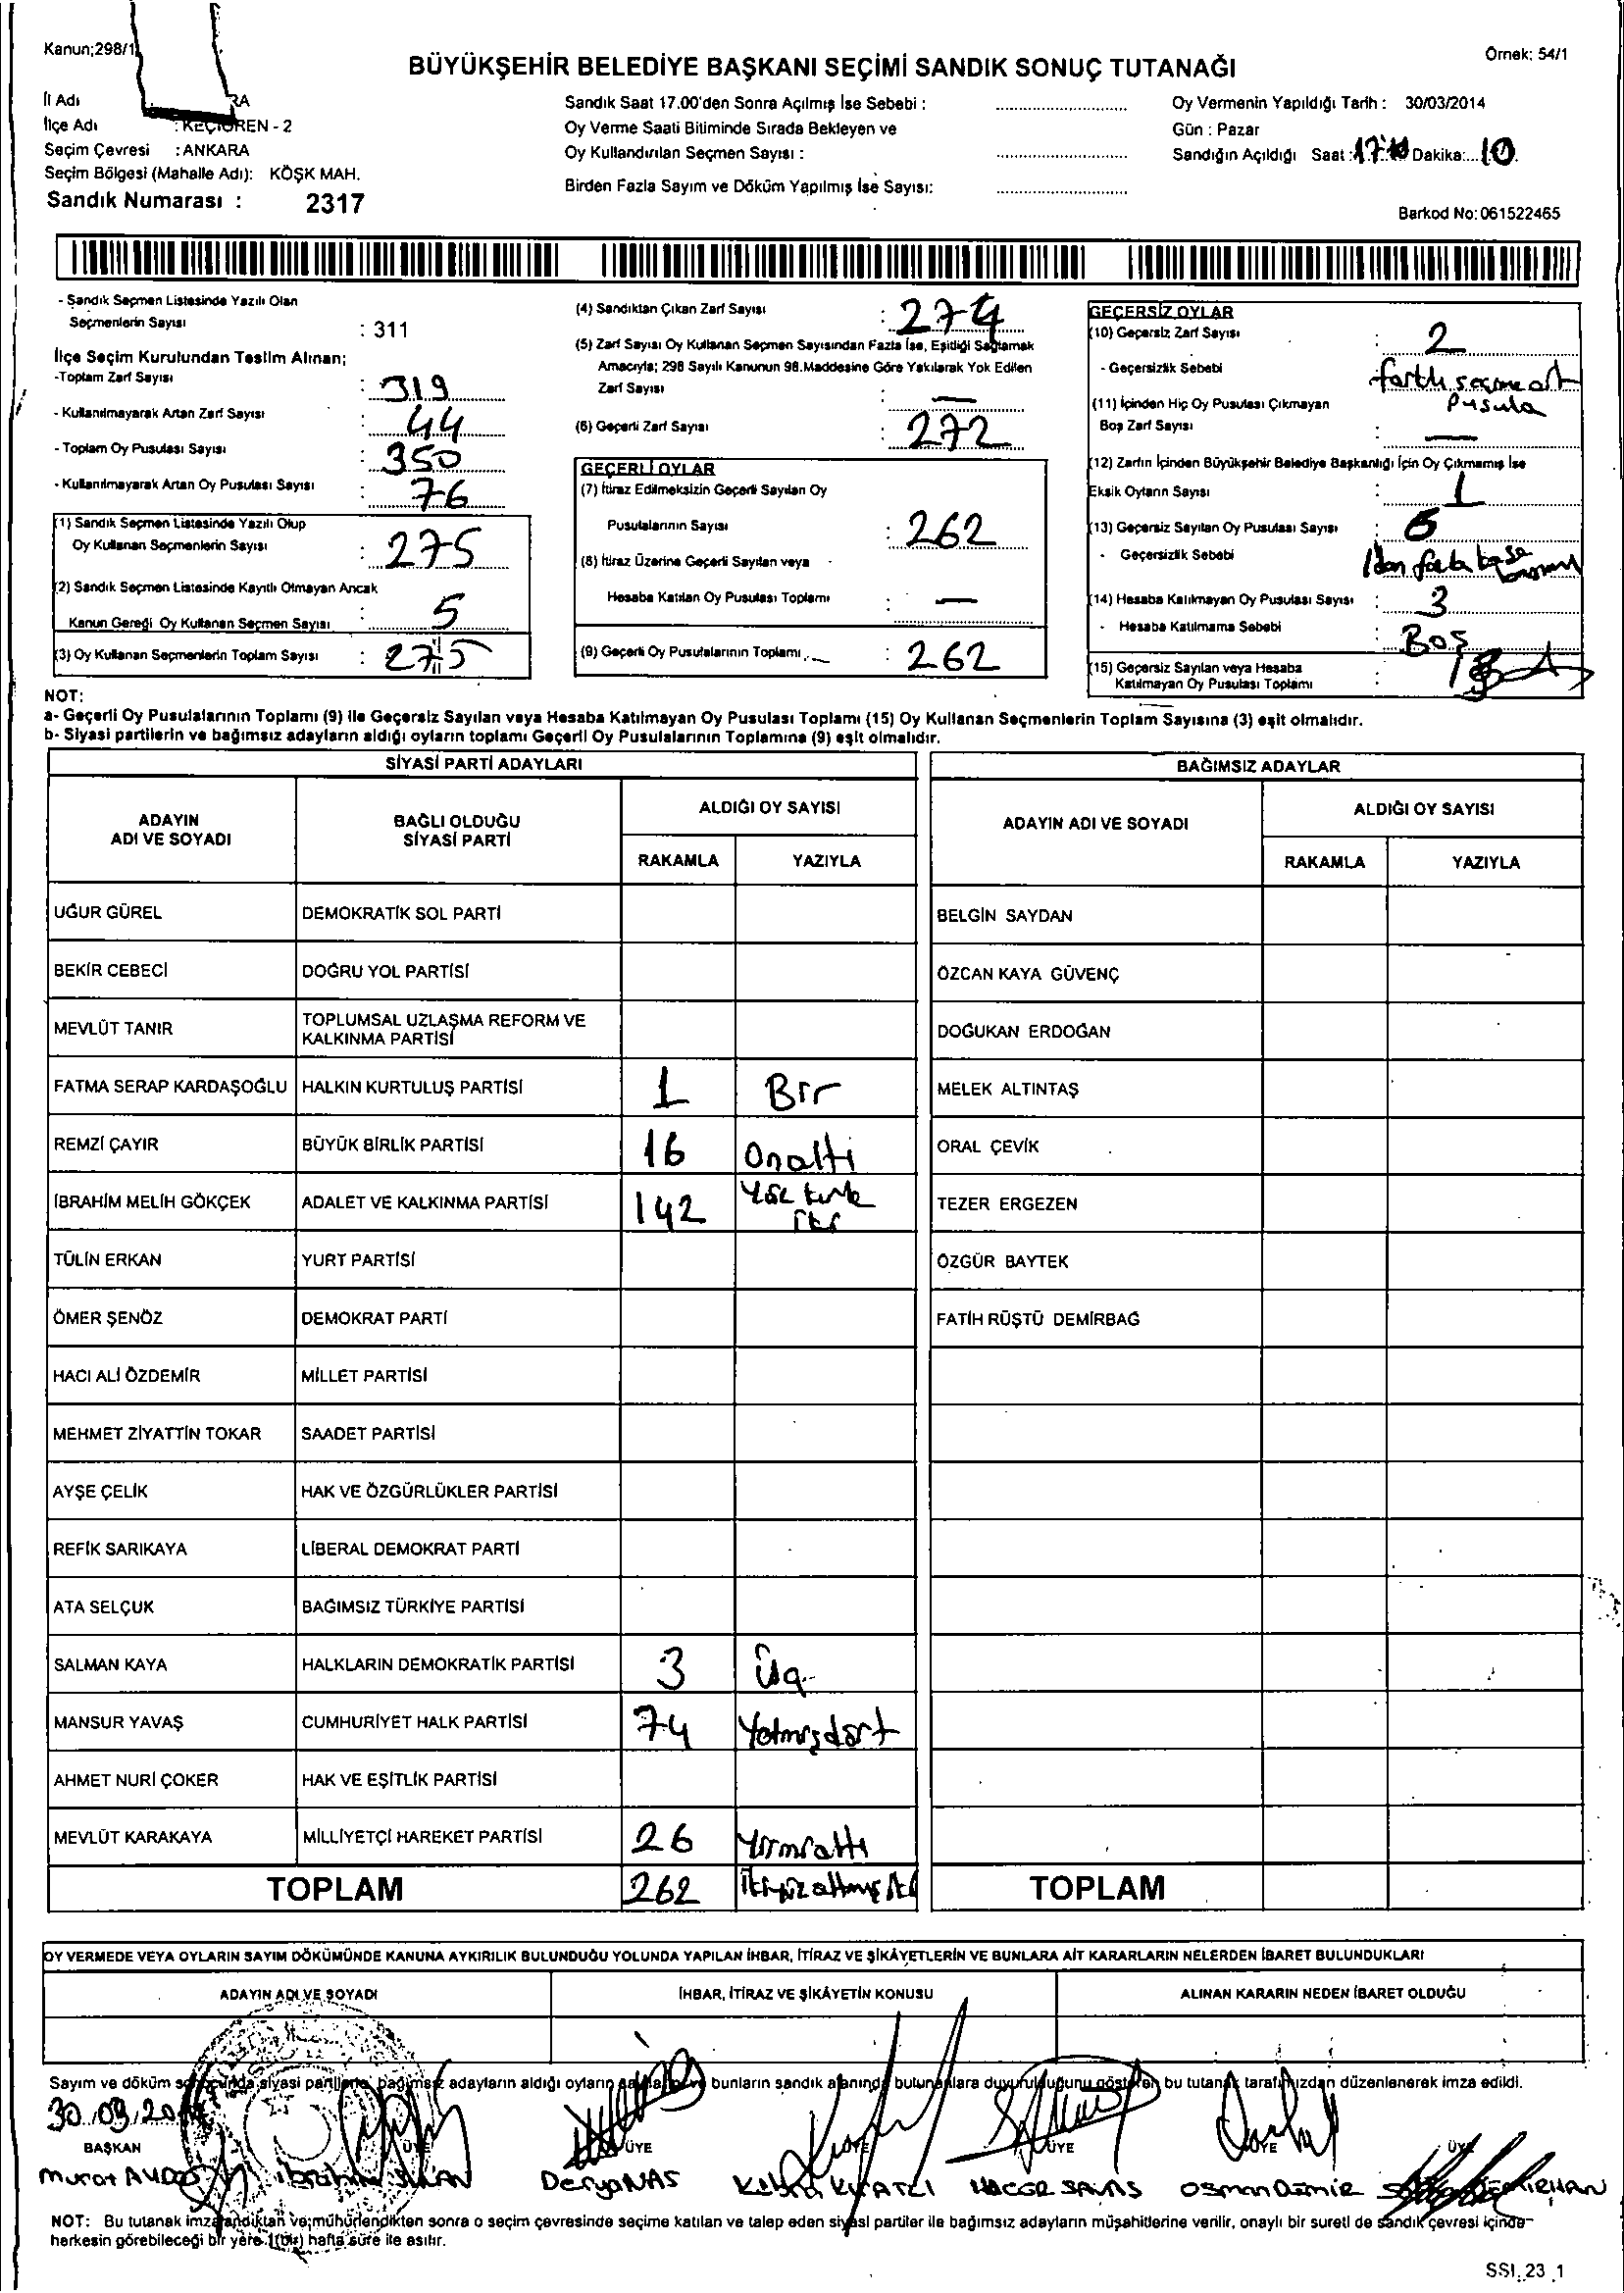 Kanun;298/1
Örnek: 54/1
BÜYÜKŞEHİR BELEDİYE BAŞKANI SEÇİMİ SANDIK SONUÇ TUTANAĞI
İl Adı RA
İlçe Adı : KEÇİÖREN - 2
Seçim Çevresi : ANKARA
Seçim Bölgesi (Mahalle Adı): KÖŞK MAH.
Sandık Numarası : 2317
Sandık Saat 17.00'den Sonra Açılmış İse Sebebi :
Oy Verme Saati Bitiminde Sırada Bekleyen ve
Oy Kullandırılan Seçmen Sayısı :
Birden Fazla Sayım ve Döküm Yapılmış İse Sayısı:
Oy Vermenin Yapıldığı Tarih : 30/03/2014
Gün : Pazar
Sandığın Açıldığı Saat : 17 Dakika:... 10
Barkod No: 061522465
- Sandık Seçmen Listesinde Yazılı Olan
Seçmenlerin Sayısı : 311
İlçe Seçim Kurulundan Teslim Alınan;
-Toplam Zarf Sayısı : 319
- Kullanılmayarak Artan Zarf Sayısı : 44
- Toplam Oy Pusulası Sayısı : 350
- Kullanılmayarak Artan Oy Pusulası Sayısı : 76
(1) Sandık Seçmen Listesinde Yazılı Olup
Oy Kullanan Seçmenlerin Sayısı : 275
(2) Sandık Seçmen Listesinde Kayıtlı Olmayan Ancak
Kanun Gereği Oy Kullanan Seçmen Sayısı : 5
(3) Oy Kullanan Seçmenlerin Toplam Sayısı : 275
(4) Sandıktan Çıkan Zarf Sayısı : 274
(5) Zarf Sayısı Oy Kullanan Seçmen Sayısından Fazla İse, Eşitliği Sağlamak
Amacıyla; 298 Sayılı Kanunun 98.Maddesine Göre Yakılarak Yok Edilen
Zarf Sayısı : —
(6) Geçerli Zarf Sayısı : 272
GEÇERLİ OYLAR
(7) İtiraz Edilmeksizin Geçerli Sayılan Oy
Pusulalarının Sayısı : 262
(8) İtiraz Üzerine Geçerli Sayılan veya
Hesaba Katılan Oy Pusulası Toplamı : —
(9) Geçerli Oy Pusulalarının Toplamı : 262
GEÇERSİZ OYLAR
(10) Geçersiz Zarf Sayısı : 2
- Geçersizlik Sebebi : farklı seçime ait
pusula
(11) İçinden Hiç Oy Pusulası Çıkmayan
Boş Zarf Sayısı : —
(12) Zarfın İçinden Büyükşehir Belediye Başkanlığı İçin Oy Çıkmamış İse
Eksik Oyların Sayısı : 1
(13) Geçersiz Sayılan Oy Pusulası Sayısı : 6
- Geçersizlik Sebebi 1den fazla
(14) Hesaba Katılmayan Oy Pusulası Sayısı : 3
- Hesaba Katılmama Sebebi : Boş
(15) Geçersiz Sayılan veya Hesaba
Katılmayan Oy Pusulası Toplamı :
NOT:
a- Geçerli Oy Pusulalarının Toplamı (9) ile Geçersiz Sayılan veya Hesaba Katılmayan Oy Pusulası Toplamı (15) Oy Kullanan Seçmenlerin Toplam Sayısına (3) eşit olmalıdır.
b- Siyasi partilerin ve bağımsız adayların aldığı oyların toplamı Geçerli Oy Pusulalarının Toplamına (9) eşit olmalıdır.
SİYASİ PARTİ ADAYLARI
ADAYIN ADI VE SOYADI
BAĞLI OLDUĞU SİYASİ PARTİ
ALDIĞI OY SAYISI
RAKAMLA YAZIYLA
UĞUR GÜREL DEMOKRATİK SOL PARTİ
BEKİR CEBECİ DOĞRU YOL PARTİSİ
MEVLÜT TANIR TOPLUMSAL UZLAŞMA REFORM VE KALKINMA PARTİSİ
FATMA SERAP KARDAŞOĞLU HALKIN KURTULUŞ PARTİSİ 1 Bir
REMZİ ÇAYIR BÜYÜK BİRLİK PARTİSİ 16 Onaltı
İBRAHİM MELİH GÖKÇEK ADALET VE KALKINMA PARTİSİ 142 Yüz kırk iki
TÜLİN ERKAN YURT PARTİSİ
ÖMER ŞENÖZ DEMOKRAT PARTİ
HACI ALİ ÖZDEMİR MİLLET PARTİSİ
MEHMET ZİYATTİN TOKAR SAADET PARTİSİ
AYŞE ÇELİK HAK VE ÖZGÜRLÜKLER PARTİSİ
REFİK SARIKAYA LİBERAL DEMOKRAT PARTİ
ATA SELÇUK BAĞIMSIZ TÜRKİYE PARTİSİ
SALMAN KAYA HALKLARIN DEMOKRATİK PARTİSİ 3 Üç
MANSUR YAVAŞ CUMHURİYET HALK PARTİSİ 74 Yetmişdört
AHMET NURİ ÇOKER HAK VE EŞİTLİK PARTİSİ
MEVLÜT KARAKAYA MİLLİYETÇİ HAREKET PARTİSİ 26 Yirmialtı
TOPLAM 262 İkiyüzaltmışiki
BAĞIMSIZ ADAYLAR
ADAYIN ADI VE SOYADI
ALDIĞI OY SAYISI
RAKAMLA YAZIYLA
BELGİN SAYDAN
ÖZCAN KAYA GÜVENÇ
DOĞUKAN ERDOĞAN
MELEK ALTINTAŞ
ORAL ÇEVİK
TEZER ERGEZEN
ÖZGÜR BAYTEK
FATİH RÜŞTÜ DEMİRBAĞ
TOPLAM
OY VERMEDE VEYA OYLARIN SAYIM DÖKÜMÜNDE KANUNA AYKIRILIK BULUNDUĞU YOLUNDA YAPILAN İHBAR, İTİRAZ VE ŞİKÂYETLERİN VE BUNLARA AİT KARARLARIN NELERDEN İBARET BULUNDUKLARI
ADAYIN ADI VE SOYADI İHBAR, İTİRAZ VE ŞİKÂYETİN KONUSU ALINAN KARARIN NEDEN İBARET OLDUĞU
Sayım ve döküm sonucunda siyasi partilerle, bağımsız adayların aldığı oyların bunların sandık alanında bulunanlara duyurulduğunu gösteren bu tutanak tarafımızdan düzenlenerek imza edildi.
30.03.20
BAŞKAN ÜYE ÜYE ÜYE ÜYE ÜYE ÜYE
Murat İbrahim Derya NAS Kübra HACER SAVAŞ Osman Demir
NOT: Bu tutanak imzalandıktan ve mühürlendikten sonra o seçim çevresinde seçime katılan ve talep eden siyasi partiler ile bağımsız adayların müşahitlerine verilir, onaylı bir sureti de sandık çevresi içinde
herkesin görebileceği bir yere 1(bir) hafta süre ile asılır.
SSI 23 1